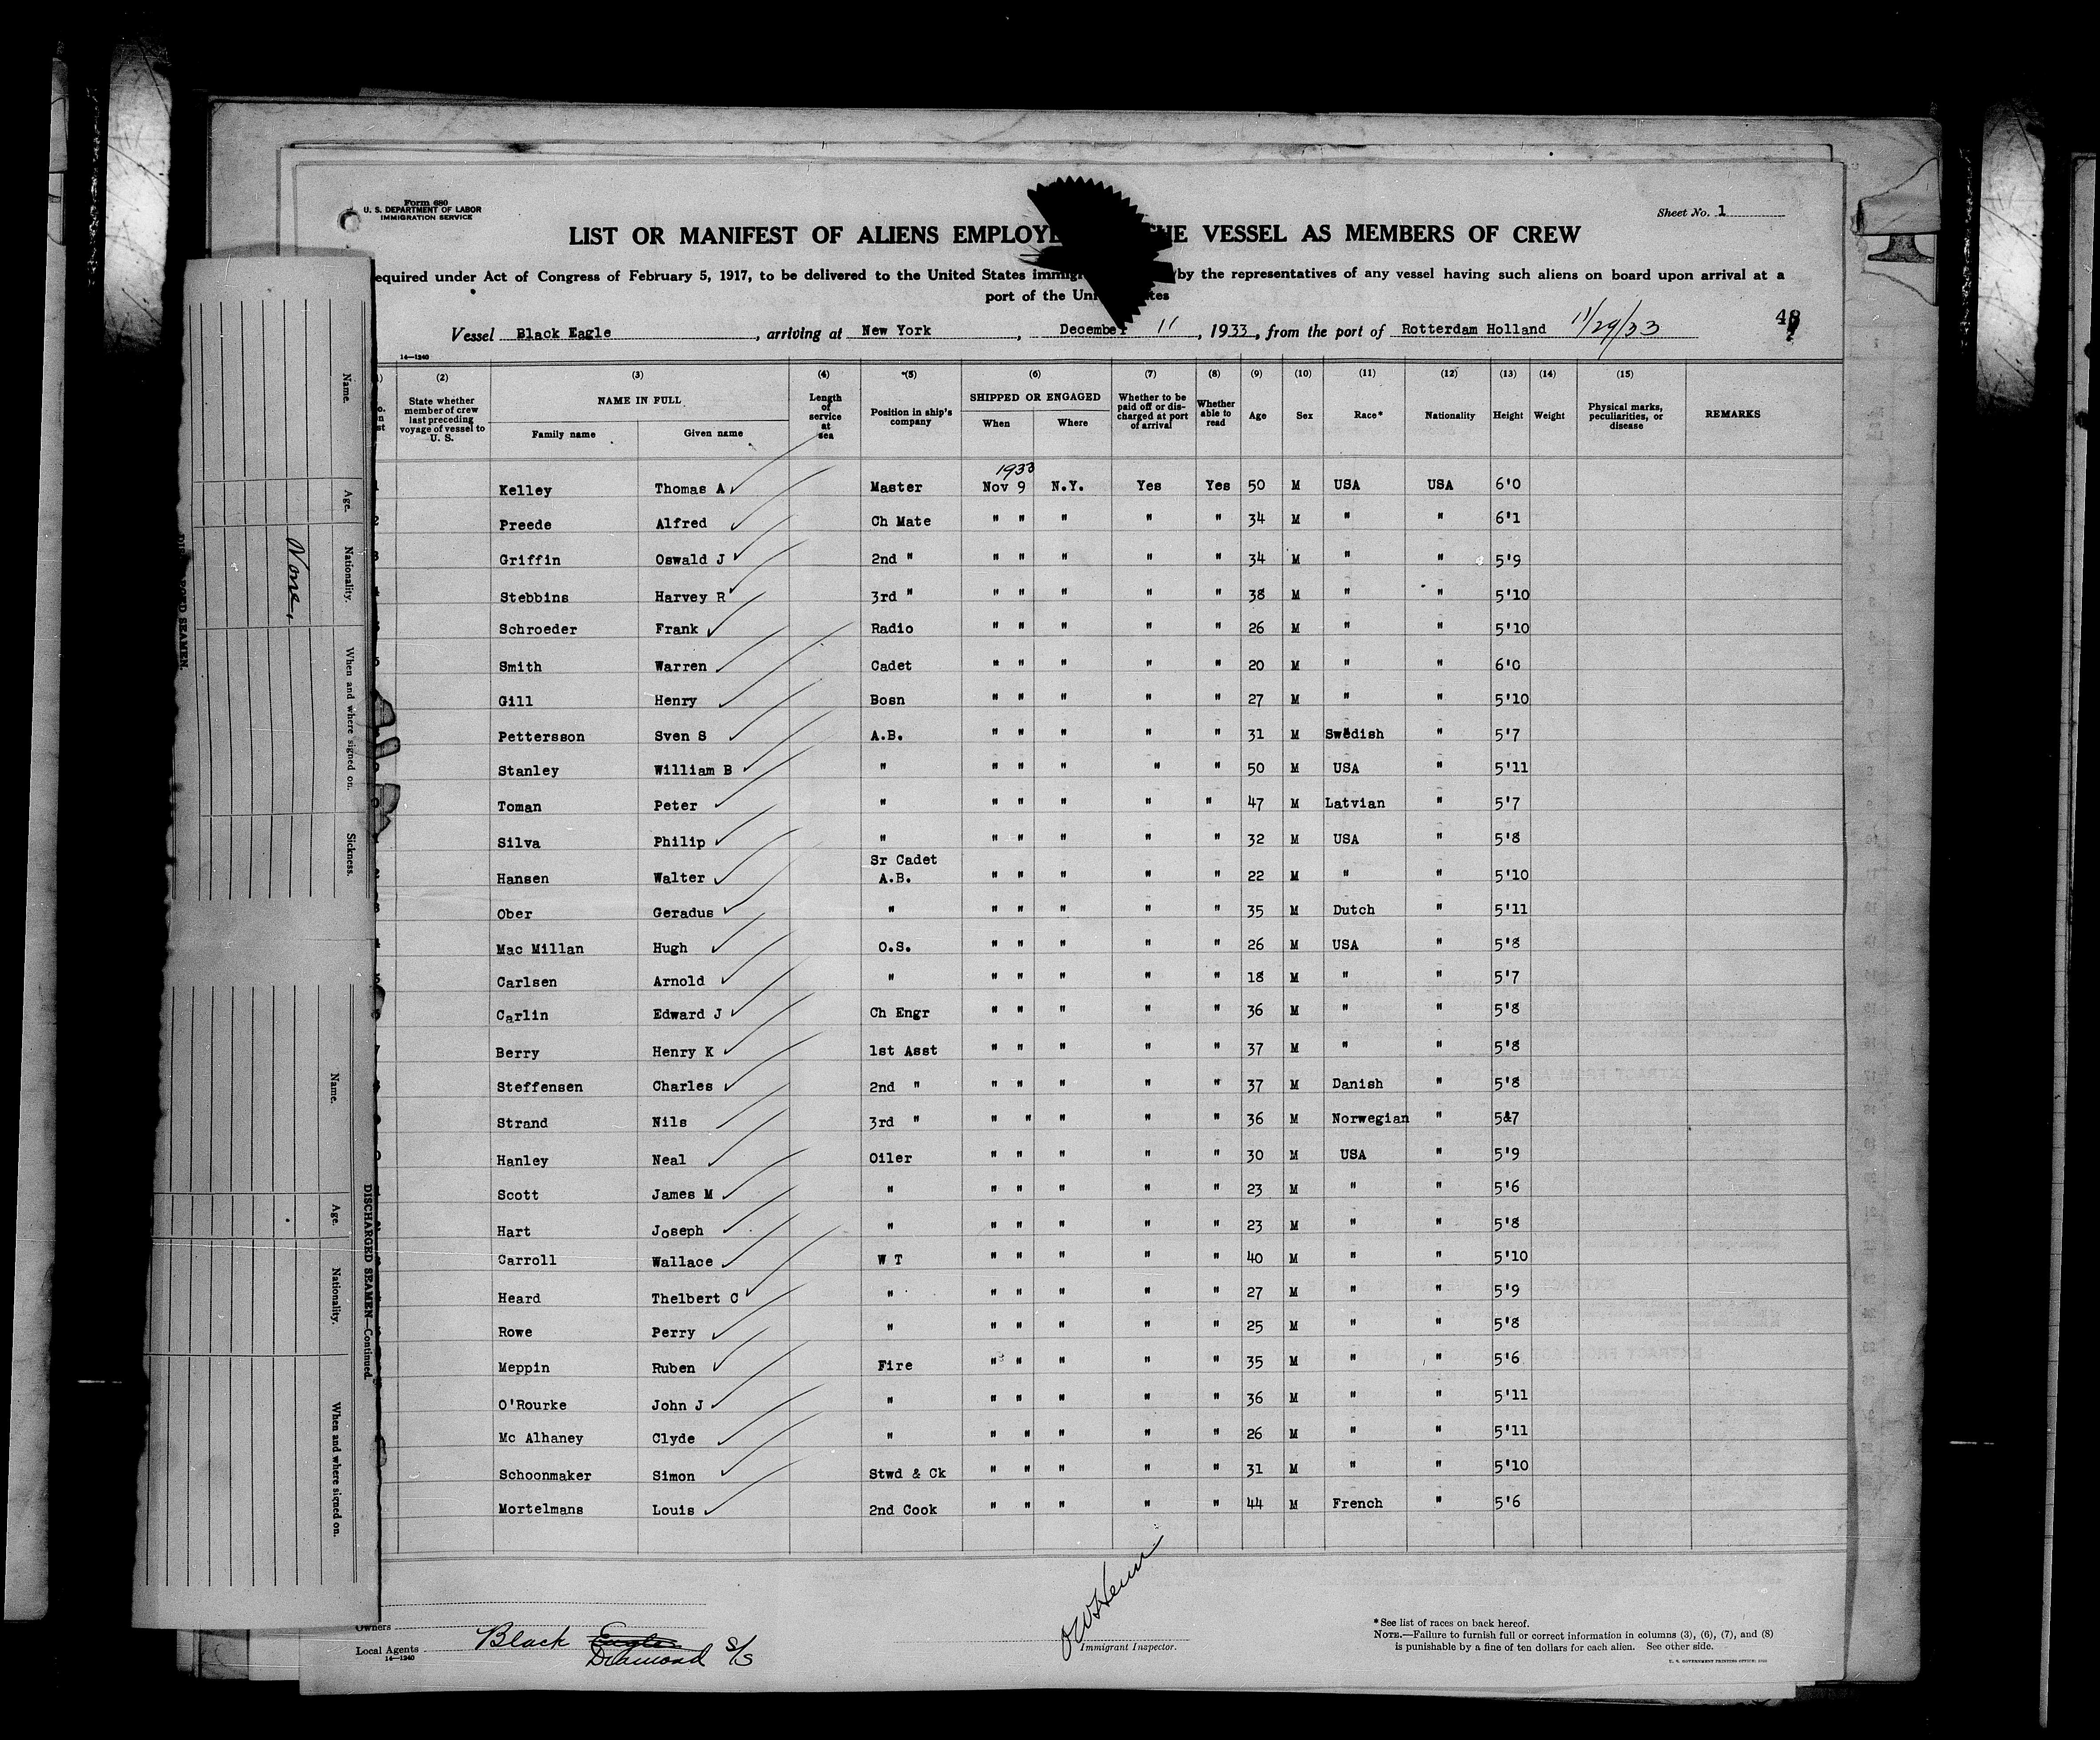 Form 680
U. S. DEPARTMENT OF LABOR
IMMIGRATION SERVICE
Sheet No. 1
LIST OR MANIFEST OF ALIENS EMPLOYE HE VESSEL AS MEMBERS OF CREW
equired under Act of Congress of February 5, 1917, to be delivered to the United States immigr by the representatives of any vessel having such aliens on board upon arrival at a
port of the Uni tes
Vessel Black Eagle, arriving at New York, December 11, 1933, from the port of Rotterdam Holland 11/29/33
48
14—1240
(2) (3) (4) (5) (6) (7) (8) (9) (10) (11) (12) (13) (14) (15)
State whether member of crew last preceding voyage of vessel to U. S. NAME IN FULL Family name Given name Length of service at sea Position in ship's company SHIPPED OR ENGAGED When Where Whether to be paid off or discharged at port of arrival Whether able to read Age Sex Race* Nationality Height Weight Physical marks, peculiarities, or disease REMARKS
1933
Kelley Thomas A Master Nov 9 N.Y. Yes Yes 50 M USA USA 6'0
Preede Alfred Ch Mate " " " " " 34 M " " 6'1
Griffin Oswald J 2nd " " " " " " 34 M " " 5'9
Stebbins Harvey R 3rd " " " " " " 38 M " " 5'10
Schroeder Frank Radio " " " " " 26 M " " 5'10
Smith Warren Cadet " " " " " 20 M " " 6'0
Gill Henry Bosn " " " " " 27 M " " 5'10
Pettersson Sven S A.B. " " " " " 31 M Swedish " 5'7
Stanley William B " " " " " " 50 M USA " 5'11
Toman Peter " " " " " " 47 M Latvian " 5'7
Silva Philip " " " " " " 32 M USA " 5'8
Sr Cadet
Hansen Walter A.B. " " " " " 22 M " " 5'10
Ober Geradus " " " " " " 35 M Dutch " 5'11
Mac Millan Hugh O.S. " " " " " 26 M USA " 5'8
Carlsen Arnold " " " " " " 18 M " " 5'7
Carlin Edward J Ch Engr " " " " " 36 M " " 5'8
Berry Henry K 1st Asst " " " " " 37 M " " 5'8
Steffensen Charles 2nd " " " " " " 37 M Danish " 5'8
Strand Nils 3rd " " " " " " 36 M Norwegian " 5&7
Hanley Neal Oiler " " " " " 30 M USA " 5'9
Scott James M " " " " " " 23 M " " 5'6
Hart Joseph " " " " " " 23 M " " 5'8
Carroll Wallace W T " " " " " 40 M " " 5'10
Heard Thelbert C " " " " " " 27 M " " 5'9
Rowe Perry " " " " " " 25 M " " 5'8
Meppin Ruben Fire " " " " " 35 M " " 5'6
O'Rourke John J " " " " " " 36 M " " 5'11
Mc Alhaney Clyde " " " " " " 26 M " " 5'11
Schoonmaker Simon Stwd & Ck " " " " " 31 M " " 5'10
Mortelmans Louis 2nd Cook " " " " " 44 M French " 5'6
Owners
Local Agents Black Eagle Diamond S/S
14—1240
Immigrant Inspector.
*See list of races on back hereof.
NOTE.—Failure to furnish full or correct information in columns (3), (6), (7), and (8)
is punishable by a fine of ten dollars for each alien. See other side.
Name. Age. Nationality. When and where signed on. Sickness.
None.
Name. Age. Nationality. When and where signed on.
DISCHARGED SEAMEN—Continued.